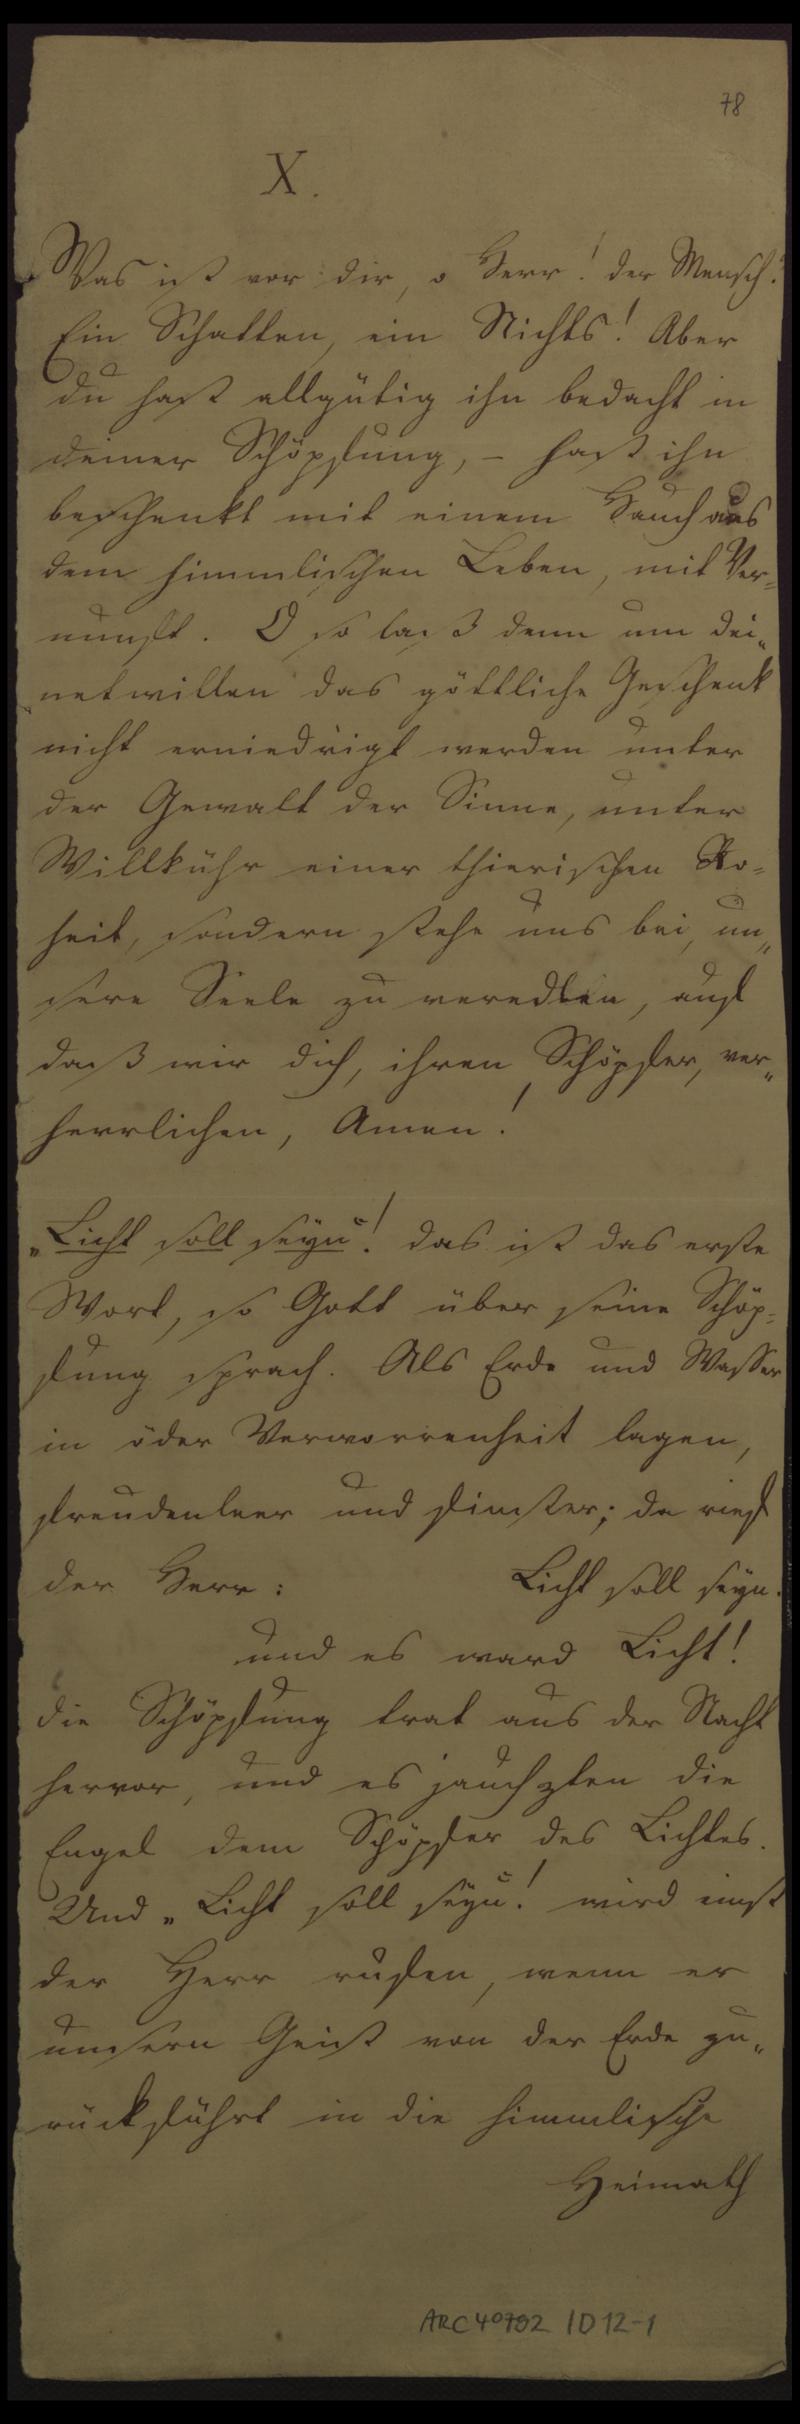 78
X.
Was ist vor dir, o Herr! der Mensch?
Ein Schatten, ein Nichts! Aber
du hast allgütig ihn bedacht in
deiner Schöpfung, – hast ihn
beschenkt mit einem Hauch aus
dem himmlischen Leben, mit Ver=
nunft. O so laß denn um dei„
„netwillen das göttliche Geschenk
nicht erniedrigt werden unter
der Gewalt der Sinne, unter
Willkühr einer thierischen Ro=
heit, sondern stehe uns bei, un„
sere Seele zu veredlen, auf
daß wir dich, ihren Schöpfer, ver„
herrlichen, Amen!
„Licht soll seyn“! das ist das erste
Wort, so Gott über seine Schöp=
fung sprach. Als Erde und Wasser
in öder Verworrenheit lagen,
freudenleer und finster; da rief
der Herr: Licht soll seyn.
und es ward Licht!
die Schöpfung trat aus der Nacht
hervor, und es jauchzten die
Engel dem Schöpfer des Lichtes.
Und „Licht soll seyn“! wird einst
der Herr rufen, wenn er
unsern Geist von der Erde zu„
rückführt in die himmlische
Heimath
ARC 40792 / D12-1